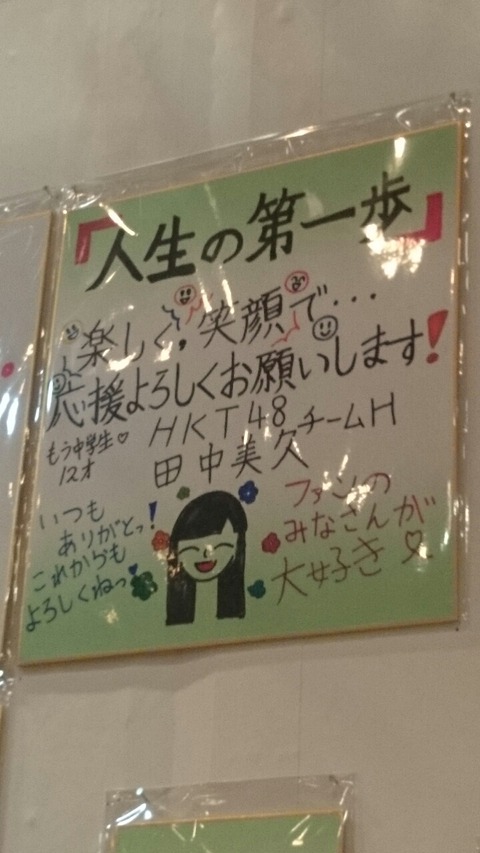 「人生の第一歩」
楽しく,笑顔で...
応援よろしくお願いします!
もう中学生♡
12才
HKT48チームH
田中美久
いつも
ありがとっ!
これからも
よろしくねっ
ファンの
みなさんが
大好き♡